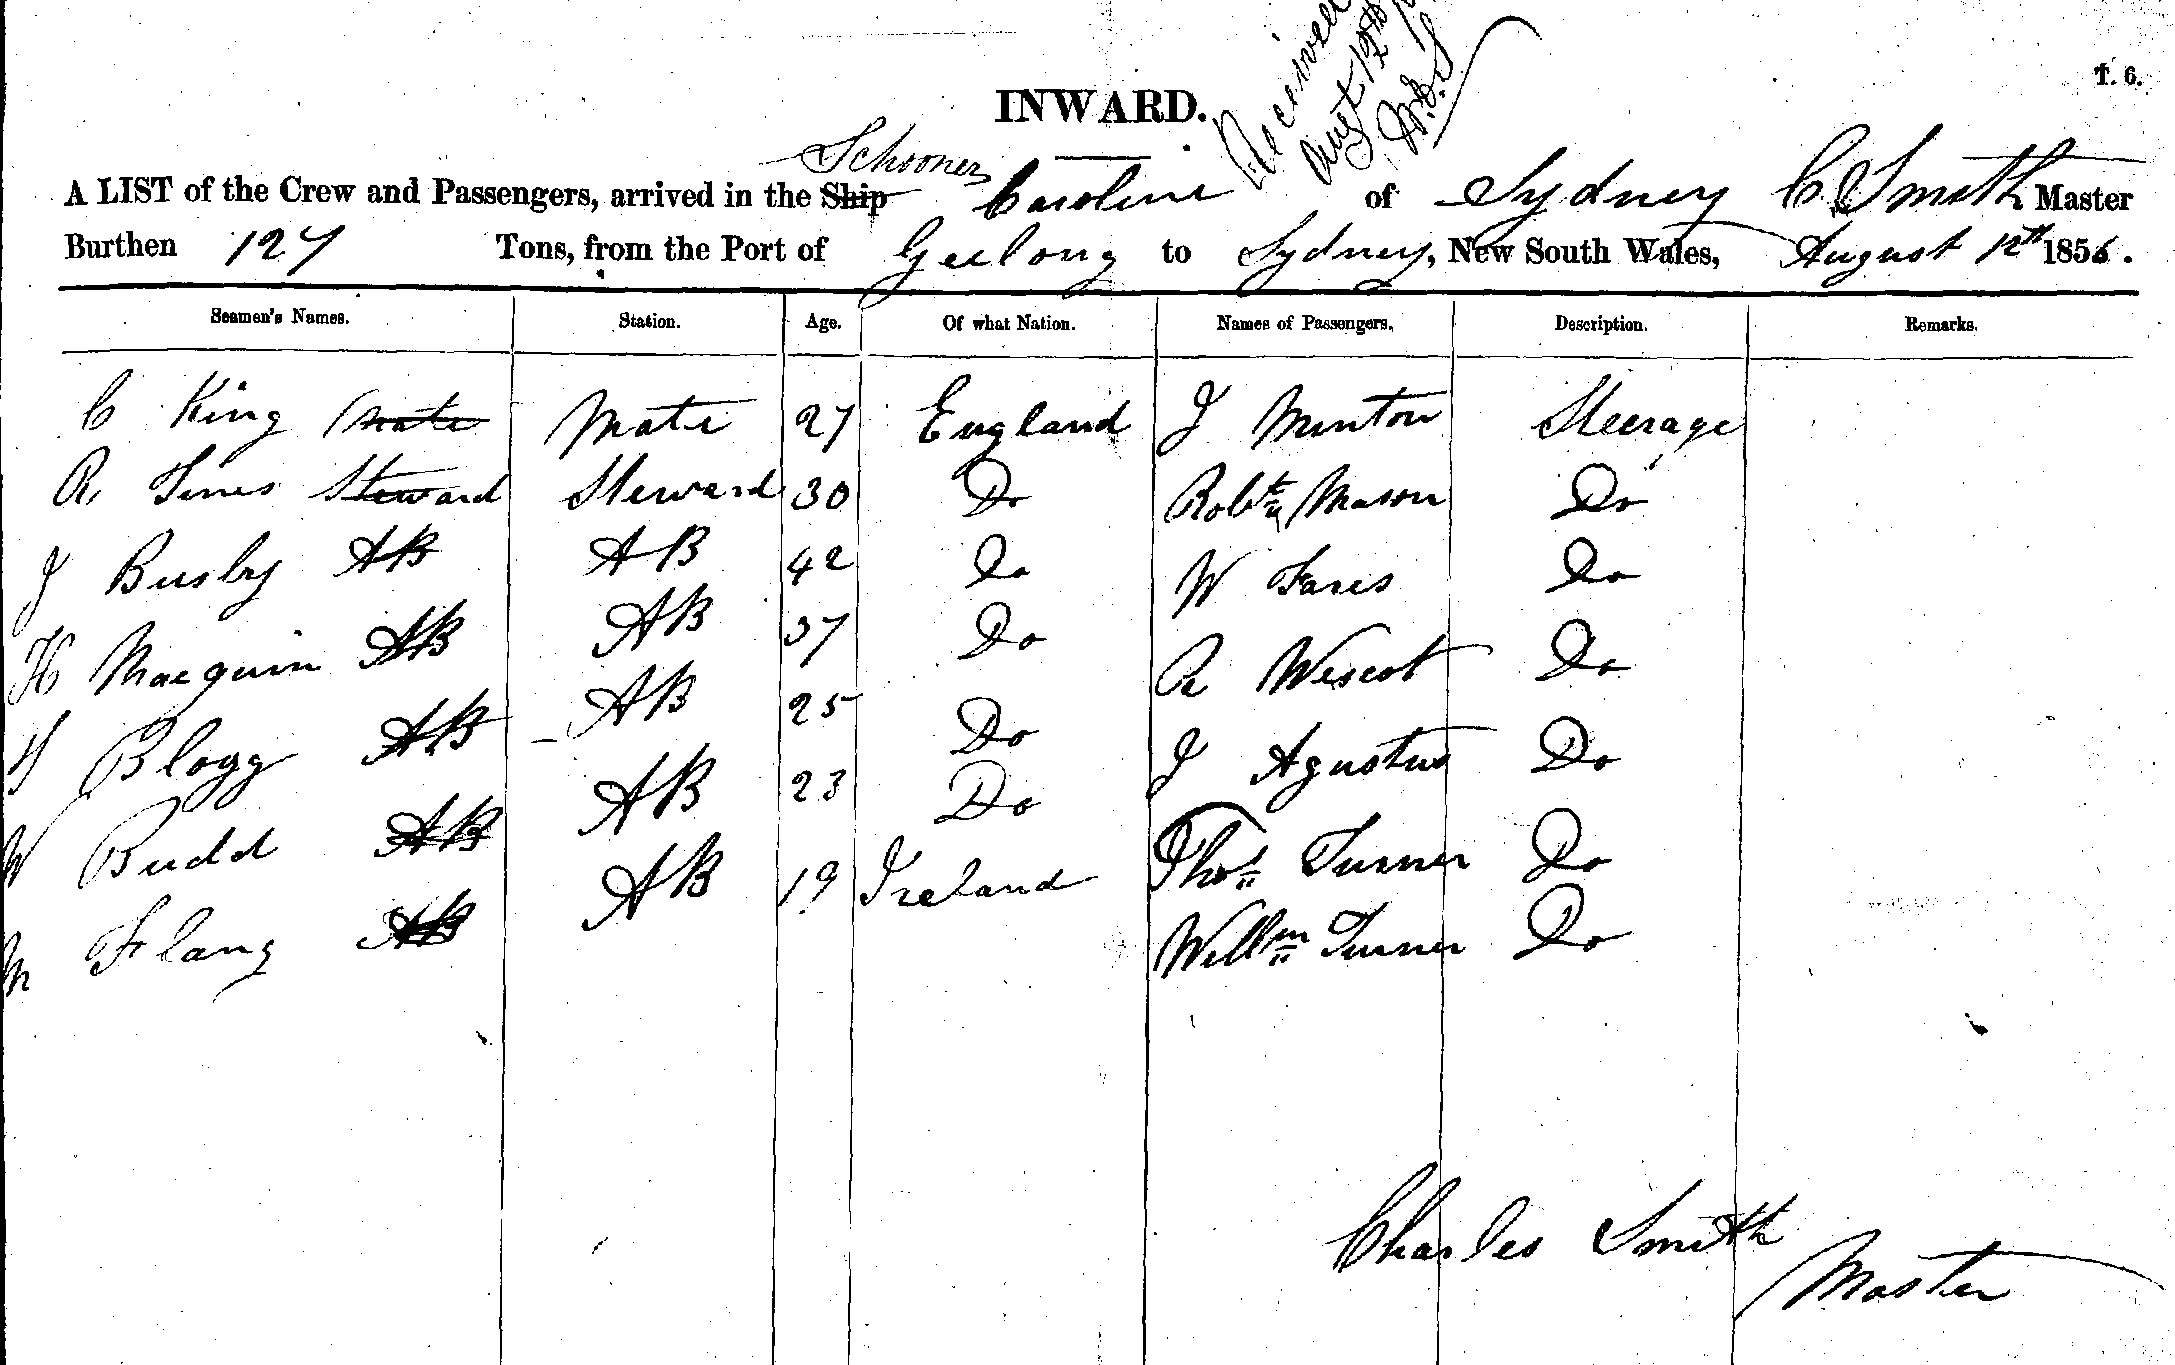 T. 6.
Received
Augt 12th
INWARD.
Schooner
A LIST of the Crew and Passengers, arrived in the Ship Caroline of Sydney C Smith Master
Burthen 127 Tons, from the Port of Geelong to Sydney, New South Wales, August 12th 1856.
Seamen's Names. Station. Age. Of what Nation. Names of Passengers. Description. Remarks.
C King mate Mate 27 England J Minton Steerage
R. Tines Steward Steward 30 Do Robt Mason Do
J Busby AB AB 42 Do W Fares Do
H Macquin AB AB 37 Do R Wescot Do
Blogg AB AB 25 Do J Agustus Do
W Budd AB AB 23 Do Thos Turner Do
M Flang AB AB 19 Ireland Willm Turner Do
Charles Smith
Master